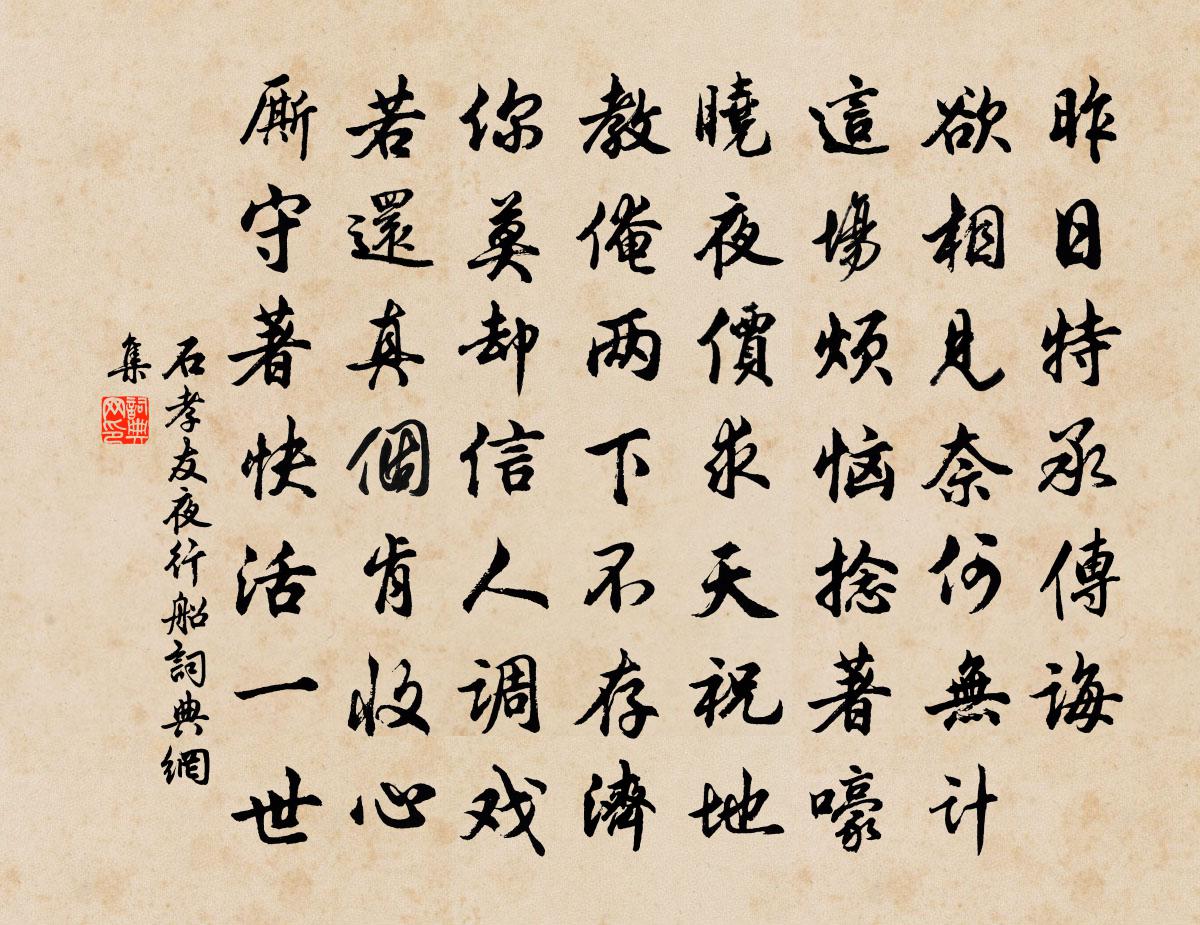 昨日特承傳誨
欲相見奈何無計
這場煩惱捻著嚎
曉夜價求天祝地
教俺两下不存濟
你莫却信人调戏
若還真個肯收心
厮守著快活一世
石孝友夜行船詞典網
集
詞典
网印